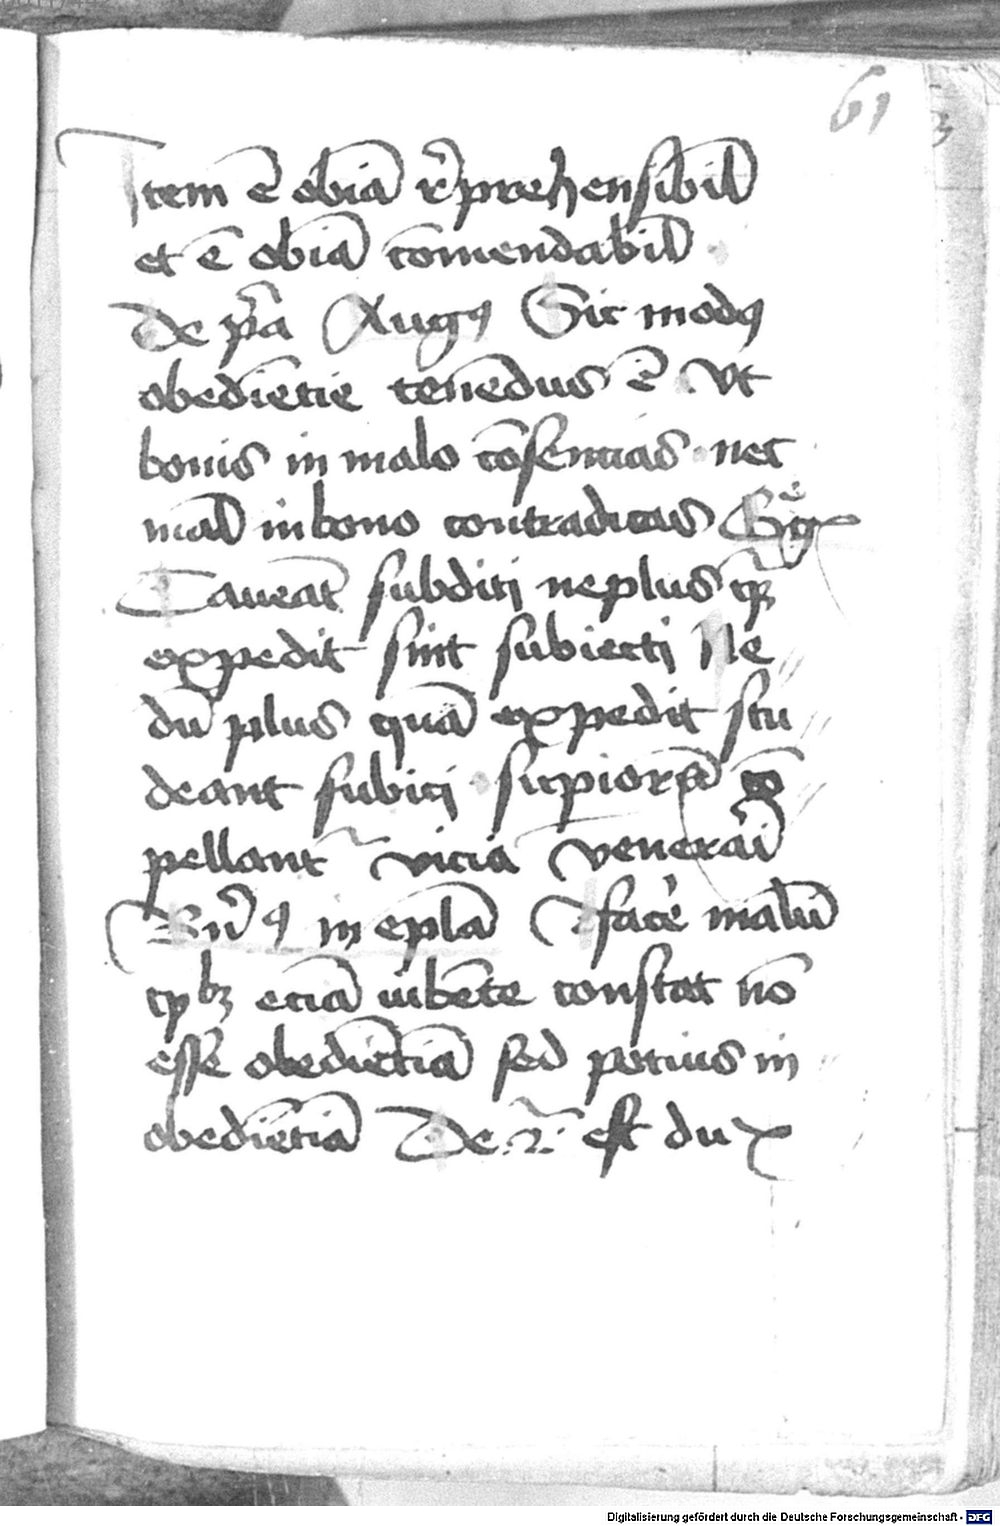 61
Item ē obiā rͥprehensibil̄
et ē obiā cōmendabil̄
De pͥa Augꝰ Sit modꝰ
obediēcie tenēdus ē vt
bonis in malo cōsencias nec
mal̄ in bono contradicas Gͤg
Caveāt subditi ne plus qͣꝫ
expedit sint subiecti Ne
dū plus quā expedit stu
deant subici suꝑiorꝝ cō
pellant vicia venerari
in epl̄a facē malū
etiā iubēte constat nō
esse obediēciā sed potius in
obediēciā De .2ͣ. est dux
Digitalisierung gefördert durch die Deutsche Forschungsgemeinschaft - DFG